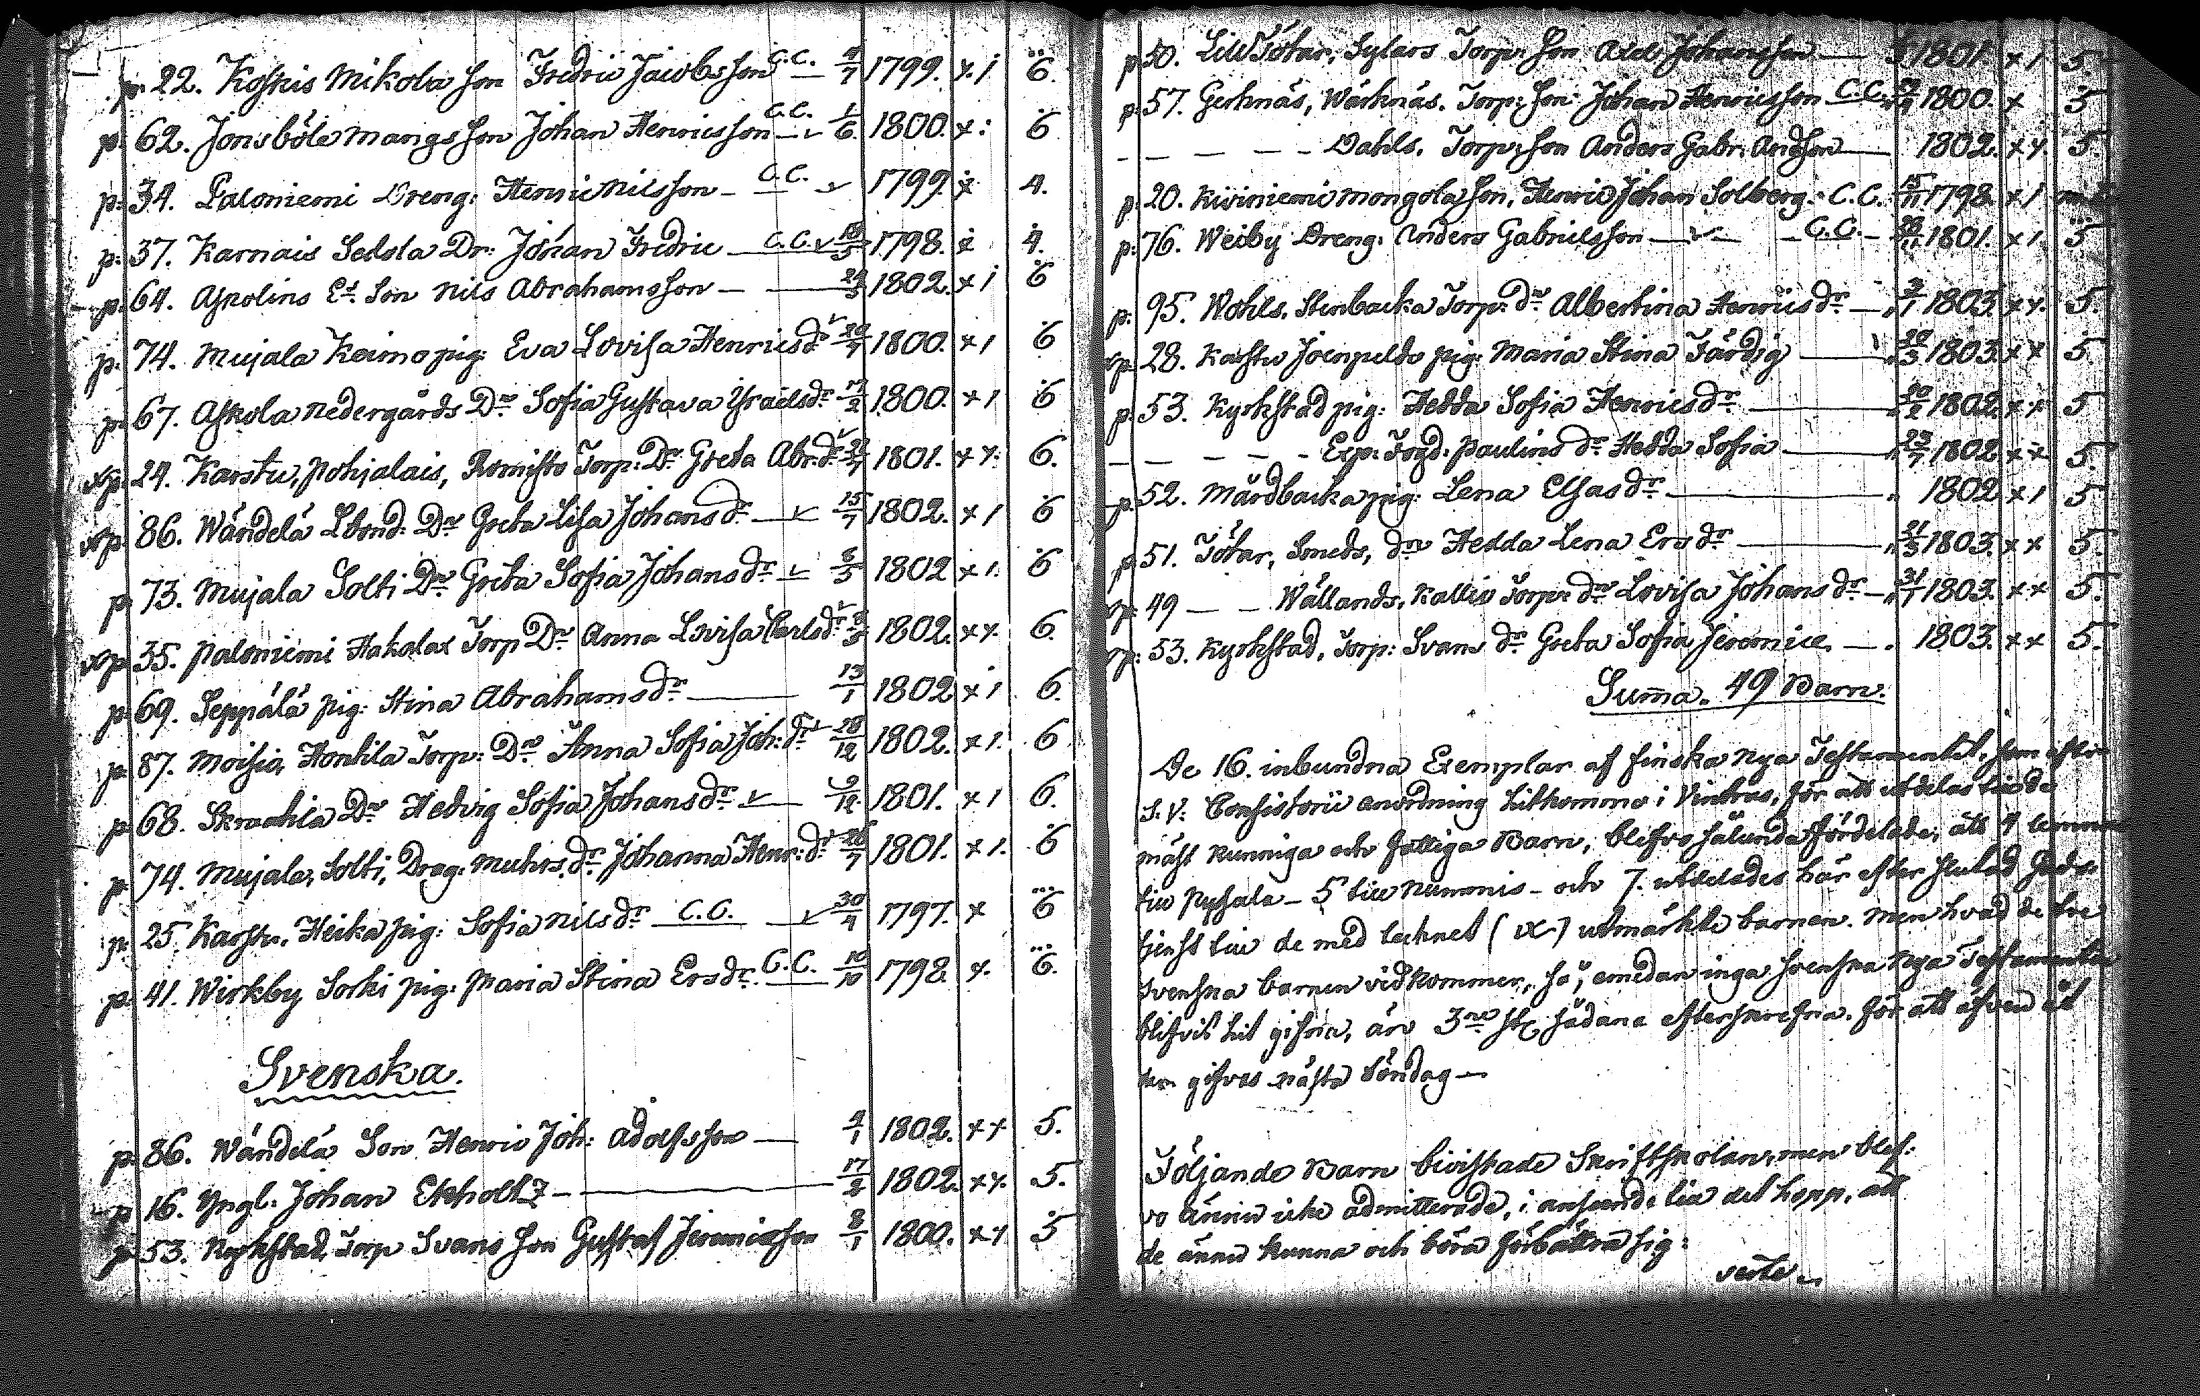 p. 22. Koskis Mikola son Fredric Jacobsson C.C. 4/7 1799. x. i 6.
p. 62. Jonsböle Mangs son Johan Henricsson C.C. 1/6 1800. x: 6
p: 34. Paloniemi Dreng: Henric Nilsson – C.C. 1799. x 4.
p: 37. Karnais Sedola Dr: Johan Fredric C.C. 1798. x 4.
p: 64. Askolins Son Nils Abrahamsson – 1802. x i 6
p: 74. Mujala Keimo pig: Eva Lovisa Henricsdr 1800. x i 6
p: 67. Askola Nedergårds Dr Sofia Gustava Israelsdr 1800. x i 6
p. 24. Karstu, Pohjalais, Torp: Dr Greta Abr:dr 1801. x x. 6.
p. 86. Wändelä Dr Greta Lisa Johansdr 15/7 1802. x i 6
p. 73. Mujala Solti Dr Greta Sofia Johansdr 8/5 1802 x i. 6
p. 35. Paloniemi Hakalax Torp Dr Anna Lovisa Carlsdr 1802. x x. 6.
p. 69. Seppälä pig: Stina Abrahamsdr 13/1 1802 x i 6.
p. 87. Moisio, Honkila Torp: Dr Anna Sofia Joh:dr 28/12 1802. x i. 6
p. 68. Skraatila Dr Hedvig Sofia Johansdr 9/12 1801. x i 6.
p. 74. Mujala, Solti, Drag: dr Johanna Henr:dr 26/7 1801. x i. 6
p. 25. Karstu. Heika pig: Sofia Nilsdr C.C. 30/4 1797. x 6
p. 41. Wirkby Sorki pig: Maria Stina Ersdr. C.C. 10/10 1798. x. 6.
Svenska.
p. 86. Wändelä Son Henric Joh: Adolfsson – 4/1 1802. x x 5.
p. 16. Yngl: Johan Ekholtz – 1802. x x. 5.
p. 53. Kyrkstad, Torp Svans son Gustaf Jeremiasson 8/1 1800. x x 5
p. 50. Torp: Son Axel Johansson 1801 x 1 5.
p. 57. Gerknäs, Wärknäs. Torp: Son: Johan Henricsson C.C. 1800. x 5
– – – – – Dahls. Torp: son Anders Gabr: Andson 1802. x x. 5.
p. 20. Kiviniemi Mongola Son, Henric Johan Solberg. C.C. 15/11 1798. x 1
p: 76. Weiby Dreng: Anders Gabrielsson – C.C. 1801. x 1. 5
p. 95. Wohls, Stenbacka Torp: dr Albertina Henricsdr 1803. x x. 5.
p. 28. Karstu Joenpeldo pig: Maria Stina Färdig 20/3 1803. x x 5
p. 53. Kyrkstad pig: Hedda Sofia Henricsdr 20/2 1802. x x 5
– – – – – Exp: Fogd. Paulins dr Hedda Sofia 23/7 1802 x x 5.
p. 52. Mårdbacka pig: Lena Elsasdr 1802 x 1 5
p. 51. Tötar, Smeds, dr Hedda Lena Ersdr 21/3 1803. x x 5.
p. 49 – – Wällands, Kallio Torp: dr Lovisa Johansdr – 31/1 1803. x x 5.
p: 53. Kyrkstad, Torp: Svans dr Greta Sofia Jeremiae. – 1803. x x 5.
Suma. 49 Barn.
De 16. inbundna Exemplar af finska Nya Testamentet, som efter
S. V: Consistorii anordning hitkommo i Vintras, för att utdelas till de
mäst kunniga och fattiga Barn, blefvo sålunda fördelade, att 4 lemnas
till Pyssala – 5 till Nummis – och 7. utdelades här efter slutad Guds-
tjenst till de med teknet (x) utmärkte barnen. Men hvad de tre
Svenska barnen vidkommer, så, emedan inga svenska Nya Testamenter
blifvit hit gifvna, äro 3ne st: sådana efterskrefna. för att äfven åt
dem gifvas nästa söndag –
Följande Barn bivistade Skriftskolan, men blef:
vo ännu icke admitterade, i anseende till det hopp, att
de ännu kunna och böra förbättra sig:
verte.